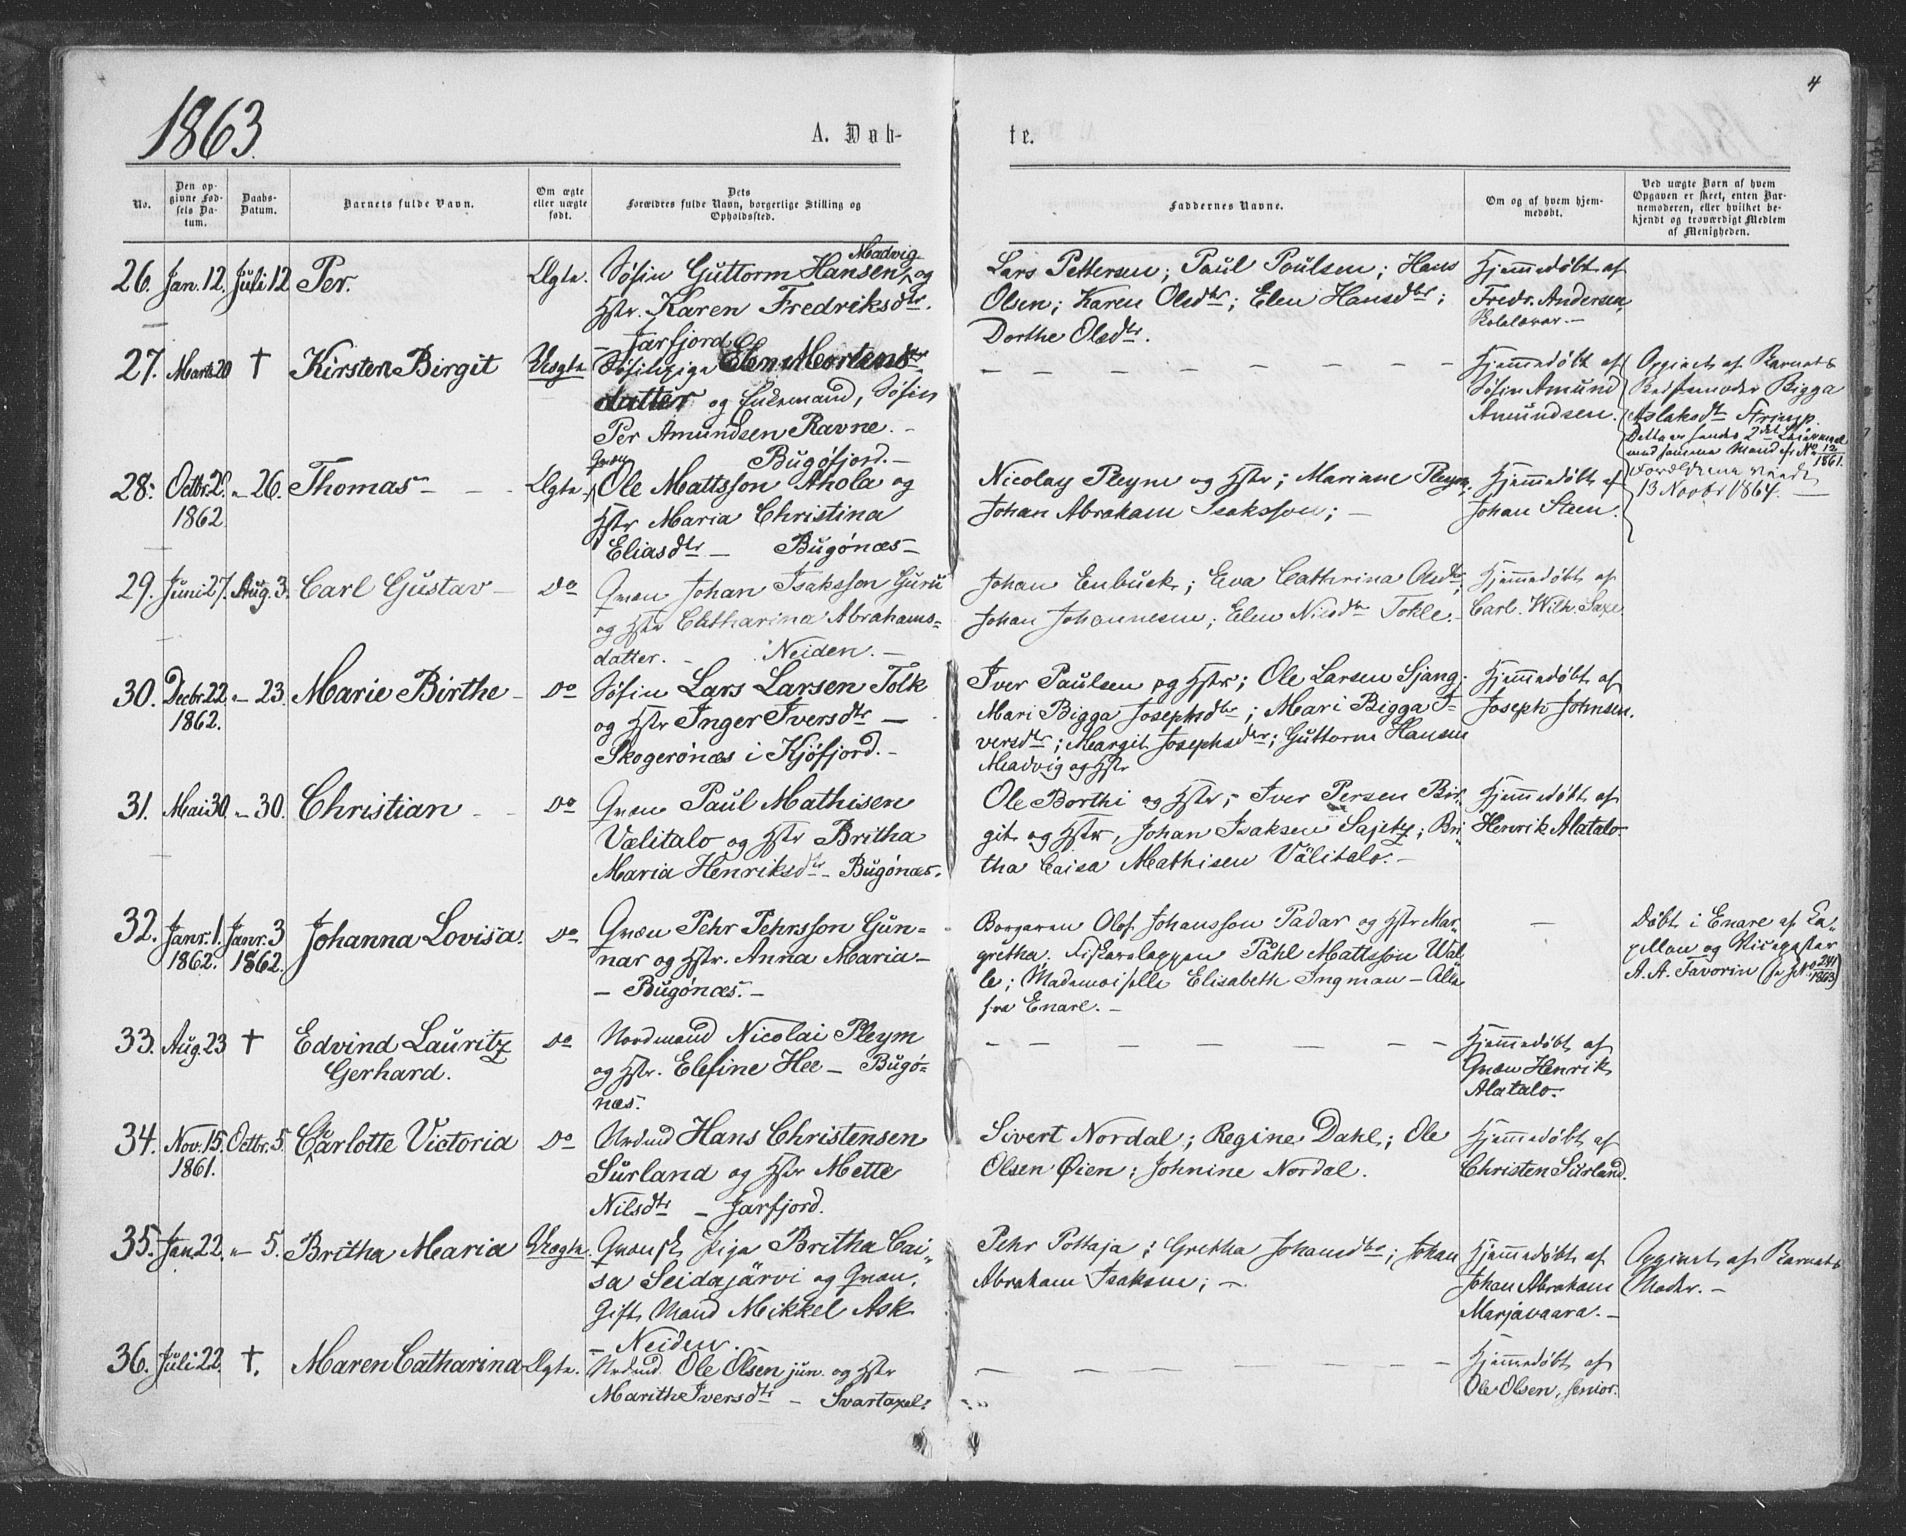 4
1863.
A. Døb-
te.
No.
Den op-
givne Fød-
sels Da-
tum.
Daabs-
Datum.
Barnets fulde Navn.
Om ægte
eller uægte
født.
Dets
Forældres fulde Navn, borgerlige Stilling og
Opholdssted.
Faddernes Navne.
Om og af hvem hjem-
medøbt.
Ved uægte Børn af hvem
Opgaven er skeet, enten Bar-
nemoderen, eller hvilket be-
kjendt og troværdigt Medlem
af Menigheden.
26. Jan. 12. Juli 12 Per. Ægte.
Madvig
Søfin Guttorm Hansen, og
Hstr. Karen Fredriksdtr.
– Jarfjord
Lars Pettersen; Paul Poulsen; Hans
Olsen; Karen Olsdtr; Elen Hansdtr;
Dorthe Olsdtr.
Hjemmedøbt af
Fredr. Andersen,
Skolelærer. –
27. Marts 20 † Kirsten Birgit Uægte
Søfinpige Elen Mortens
datter og Enkemand, Søfin
Per Amundsen Ravne. –
Bugøfjord. –
– – – – – – –
Hjemmedøbt af
Søfin Amund
Amundsen.
Opgivet af Barnets
Bedstemoder Bigga
Aslaksdtr
Dette er hendes 2det Leiermaal
med samme Mand cfr No 12/1861.
Forældrene viede
13 Novbr 1864. –
28. Octbr. 20 „ 26. Thomas – – – Ægte
1862.
Qvæn
Ole Mattsson Ahola og
Hstr Maria Christina
Eliasdtr – Bugønæs –
Nicolay Pleym og Hstr; Mariane Pleym;
Johan Abraham Isaksson; –
Hjemmedøbt af
Johan Steen.
29. Juni 27. Aug. 3. Carl Gustav – Do
Qvæn Johan Isaksson Guru
og Hstr Catharina Abrahams-
datter. – Neiden. –
Johan Enbusk; Eva Cathrina Olsdtr;
Johan Johannesen; Elen Nilsdtr Tokle. –
Hjemmedøbt af
Carl. Wilh. Saxe
30. Decbr. 22 „ 23. Marie Birthe – Do
1862.
Søfin Lars Larsen Tolk
og Hstr Inger Iversdtr –
Skogerønæs i Kjøfjord. –
Iver Paulsen og Hstr; Ole Larsen Sjang;
Mari Bigga Josephsdtr; Mari Bigga I-
versdtr; Margit Josephsdtr; Guttorm Hansen
Madvig og Hstr
Hjemmedøbt af
Joseph Johnsen.
31. Mai 30. „ 30. Christian – – Do
Qvæn Paul Mathisen
Vælitalo og Hstr Britha
Maria Henriksdtr – Bugønæs.
Ole Borthi og Hstr; Iver Persen Bir-
git og Hstr, Johan Isaksen Sajetz; Bri-
tha Caisa Mathisen Välitalo. –
Hjemmedøbt af
Henrik Alatalo
32. Janr. 1. Janr. 3 Johanna Lovisa. Do
1862. 1862.
Qvæn Pehr Pehrsson Gun-
nar og Hstr. Anna Maria –
– Bugønæs. –
Borgaren Olof Johansson Padar og Hstr Mar-
gretha. Fiskarelappen Påhl Mattsson Wal-
le; Mademoiselle Elisabeth Ingman – Alle
fra Enare. –
–
Døbt i Enare af Ka-
pellan og Vicepastor
A. A. Favorin (se J No 241/1863)
33. Aug. 23 † Edvind Lauritz Do
Gerhard.
Nordmand Nicolai Pleym
og Hstr. Elefine Hee – Bugø-
næs.
– – – – – – –
Hjemmedøbt af
Qvæn Henrik
Alatalo.
34. Nov. 15. Octbr. 5. Charlotte Victoria Do
1861.
Nrdmd Hans Christensen
Surland og Hstr Mette
Nilsdtr – Jarfjord.
Sivert Nordal; Regine Dahl; Ole
Olsen Øien; Johnine Nordal.
Hjemmedøbt af
Christen Surland.
35. Jan. 22. „ 5. Britha Maria Uægte.
Qvænsk Pige Britha Cai-
sa Seidajärvi og Qvæn,
Gift Mand Mikkel Ask
– Neiden.
Pehr Pottaja; Gretha Johansdtr; Johan
Abraham Isaksen; –
Hjemmedøbt af
Johan Abraham
Marjavaara. –
Opgivet af Barnets
Moder. –
36. Juli 22. †. Maren Catharina Ægte.
Nrdmd. Ole Olsen jun. og Hstr
Marithe Iversdtr – Svartaxel.
– – – – – – –
Hjemmedøbt af
Ole Olsen, senior.